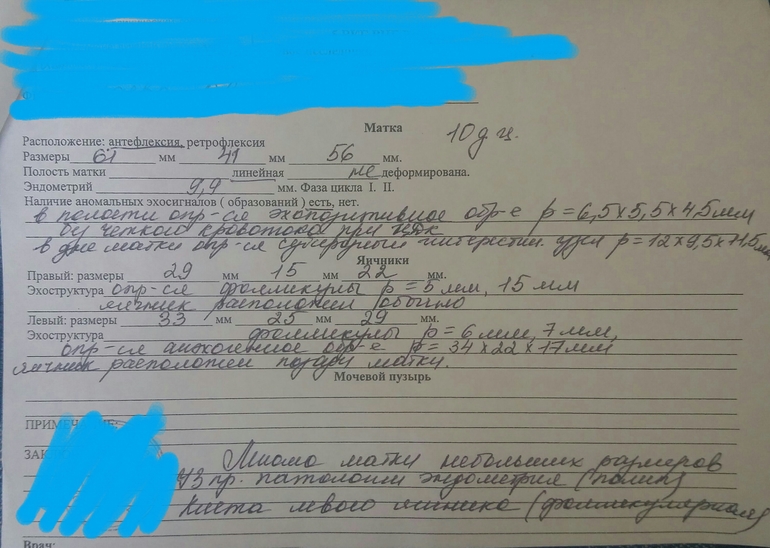 Матка
10 д ц.
Расположение: антефлексия, ретрофлексия
Размеры 61 мм 41 мм 56 мм.
Полость матки линейная не деформирована.
Эндометрий 9,9 мм. Фаза цикла I. II.
Наличие аномальных эхосигналов ( образований ) есть, нет.
в полости опр-ся эхопозитивное обр-е р=6,5х5,5х4,5мм
без четкого кровотока при ЦДК
в дне матки опр-ся интерстиц. узел р=12х9,5х11,5мм
Яичники
Правый: размеры 29 мм 15 мм 22 мм.
Эхоструктура опр-ся фолликулы р=5мм, 15мм
яичник расположен обычно
Левый: размеры 33 мм 25 мм 29 мм.
Эхоструктура фолликулы р=6мм, 7мм,
опр-ся анэхогенное обр-е р=34х22х17мм
яичник расположен позади матки.
Мочевой пузырь
ПРИМЕЧАНИЕ:
Миома матки небольших размеров
УЗ пр. патологии эндометрия (полип)
Киста левого яичника (фолликулярная)
Врач: